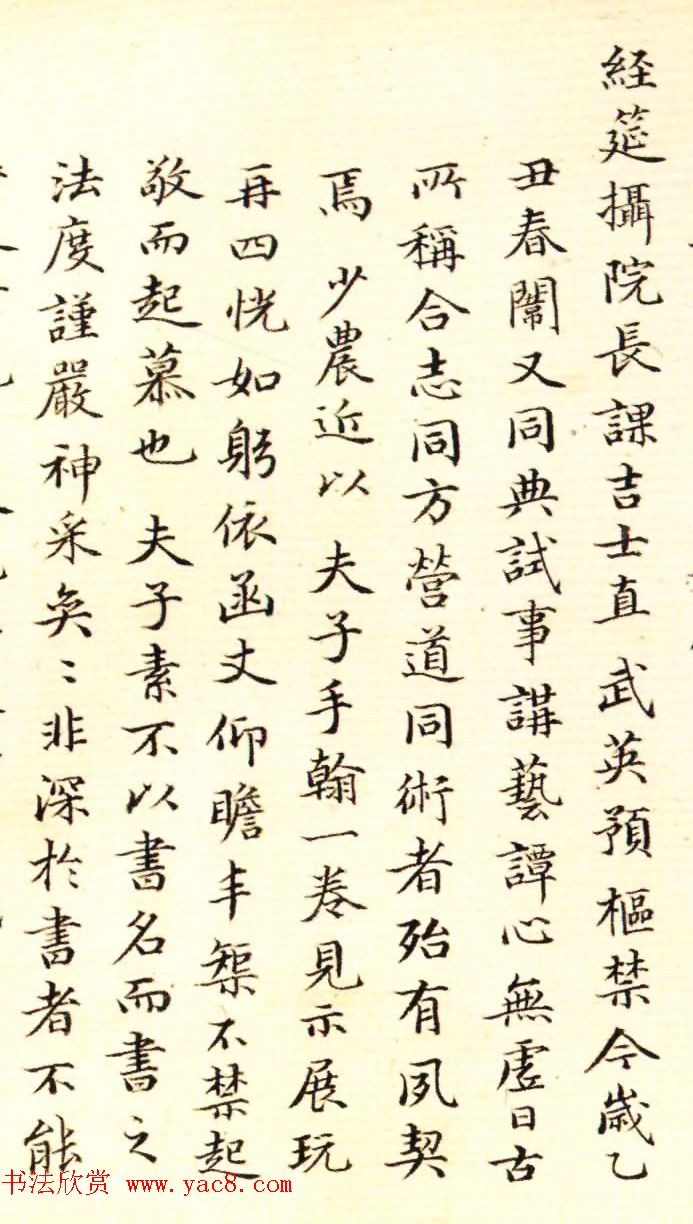 経筵攝院長課吉士直武英預樞禁今歲乙
丑春闈又同典試事講藝譚心無虛日古
所稱合志同方營道同術者殆有夙契
焉少農近以夫子手翰一卷見示展玩
再四恍如躬依函丈仰瞻丰榘不禁起
敬而起慕也夫子素不以書名而書之
法度謹嚴神采奐〻非深於書者不能
书法欣赏 www.yac8.com